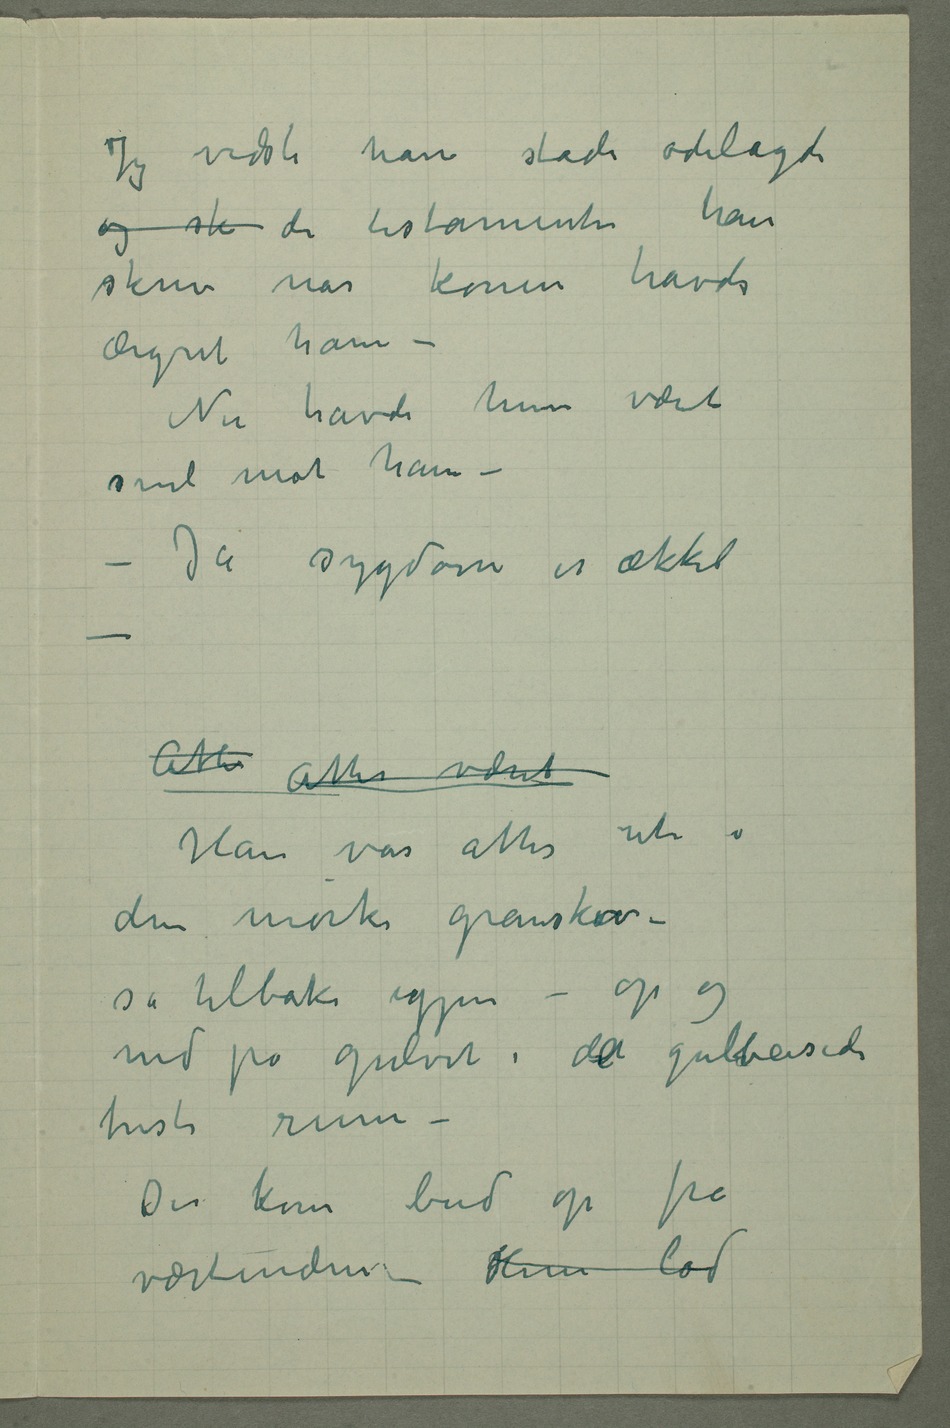 Jeg vidste han stadi ødelagde
og sk de testamenter han
skrev når konen havde
ærgret ham –
Nu havde hun vært
snil mot ham –
– Ja sygdom er ækkel
–
Atter Atter været
Han var atter ute i
den mørke granskov –
så tilbake igjen – op og
ned på gulvet i det gulbeisede
triste rum –
Der kom bud op fra
værtinden – Hun lod